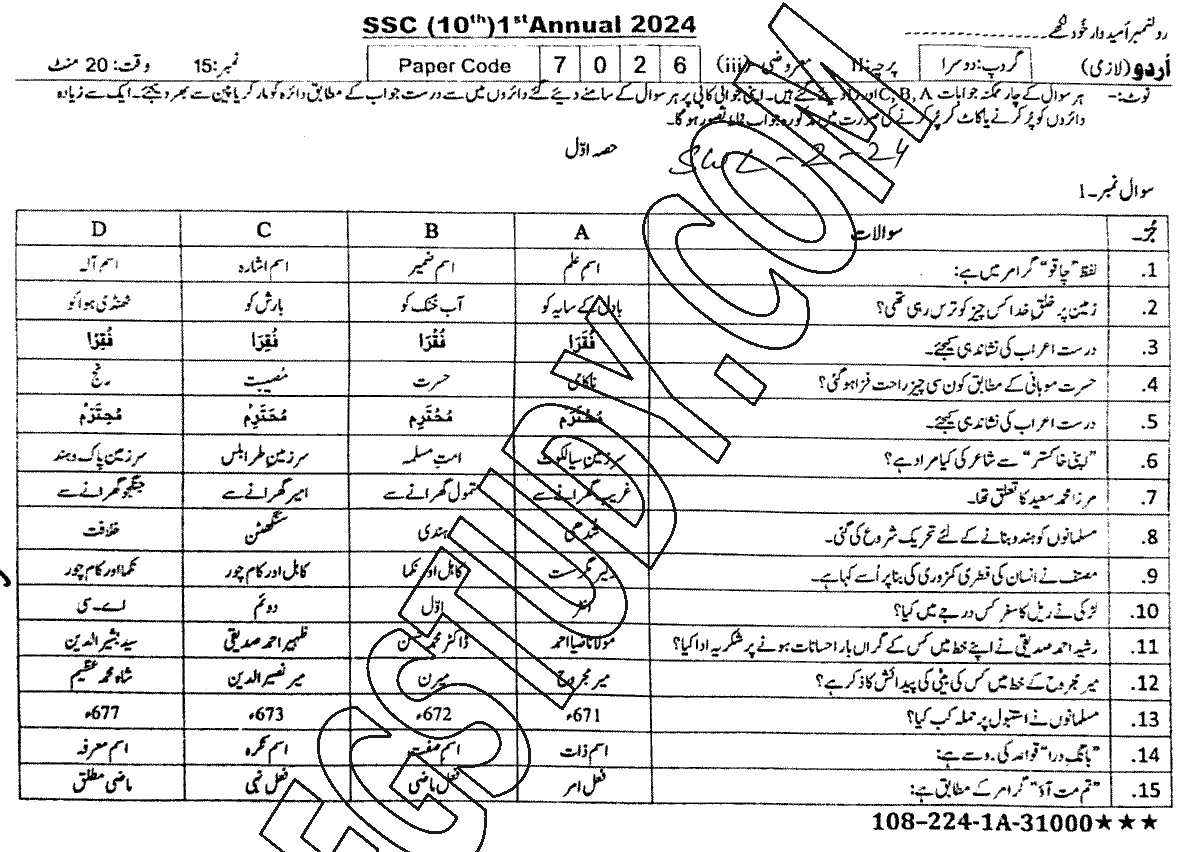 SSC (10th)1st Annual 2024
رولنمبر اُمیدوار خُود لکھے
اُردو (لازمی) گروپ: دوسرا پرچہ: II معروضی (iii) Paper Code 7 0 2 6 نمبر: 15 وقت: 20 منٹ
نوٹ:- ہر سوال کے چار ممکنہ جوابات C, B, A اور D دیئے گئے ہیں۔ اپنی جوابی کاپی پر ہر سوال کے سامنے دیئے گئے دائروں میں سے درست جواب کے مطابق دائرہ کو مارکر یا پین سے بھر دیجئے۔ ایک سے زیادہ
دائروں کو پُر کرنے یا کاٹ کر پُر کرنے کی صورت میں مذکورہ جواب غلط تصور ہو گا۔
حصہ اوّل SWL-2-24
سوال نمبر۔1
جُز۔ سوالات A B C D
1. لفظ "چاقو" گرامر میں ہے: اسم علم اسم ضمیر اسم اشارہ اسم آلہ
2. زمین پر خلقِ خدا کس چیز کو ترس رہی تھی؟ بادل کے سایہ کو آب خنک کو بارش کو ٹھنڈی ہوا کو
3. درست اعراب کی نشاندہی کیجئے۔ فُقَرَا فُقْرَا فُقِرَا فُقِرَّا
4. حسرت موہانی کے مطابق کون سی چیز راحت فزا ہو گئی؟ ناکامی حسرت مُصیبت رنج
5. درست اعراب کی نشاندہی کیجئے۔ مُحْتَرَم مُحْتَرِم مُحَتَرِم مُحِتَرَم
6. "اپنی خاکستر" سے شاعر کی کیا مراد ہے؟ سرزمینِ سیالکوٹ امتِ مسلمہ سرزمینِ طرابلس سرزمین پاک و ہند
7. مرزا محمد سعید کا تعلق تھا۔ غریب گھرانے سے متمول گھرانے سے امیر گھرانے سے جنگجو گھرانے سے
8. مسلمانوں کو ہندو بنانے کے لئے تحریک شروع کی گئی۔ شُدھی ہندی سنگھٹن خلافت
9. مصنف نے انسان کی فطری کمزوری کی بنا پر اُسے کہا ہے۔ کاہل اور نکما کاہل اور کام چور نکما اور کام چور
10. لڑکی نے ریل کا سفر کس درجے میں کیا؟ انٹر اوّل دوئم اے۔سی
11. رشید احمد صدیقی نے اپنے خط میں کس کے گراں بار احسانات ہونے پر شکریہ ادا کیا؟ مولانا ضیا احمد ڈاکٹر محمد حسن ظہیر احمد صدیقی سید بشیر الدین
12. میر مجروح کے خط میں کس کی بیٹی کی پیدائش کا ذکر ہے؟ میر مجروح میرن میر نصیر الدین شاہ محمد عظیم
13. مسلمانوں نے استنبول پر حملہ کب کیا؟ 671ء 672ء 673ء 677ء
14. "بانگ درا" قواعد کی رو سے ہے: اسم ذات اسم صفت اسم نکرہ اسم معرفہ
15. "تم مت آؤ" گرامر کے مطابق ہے: فعل امر فعل ماضی فعل نہی ماضی مطلق
108-224-1A-31000★★★